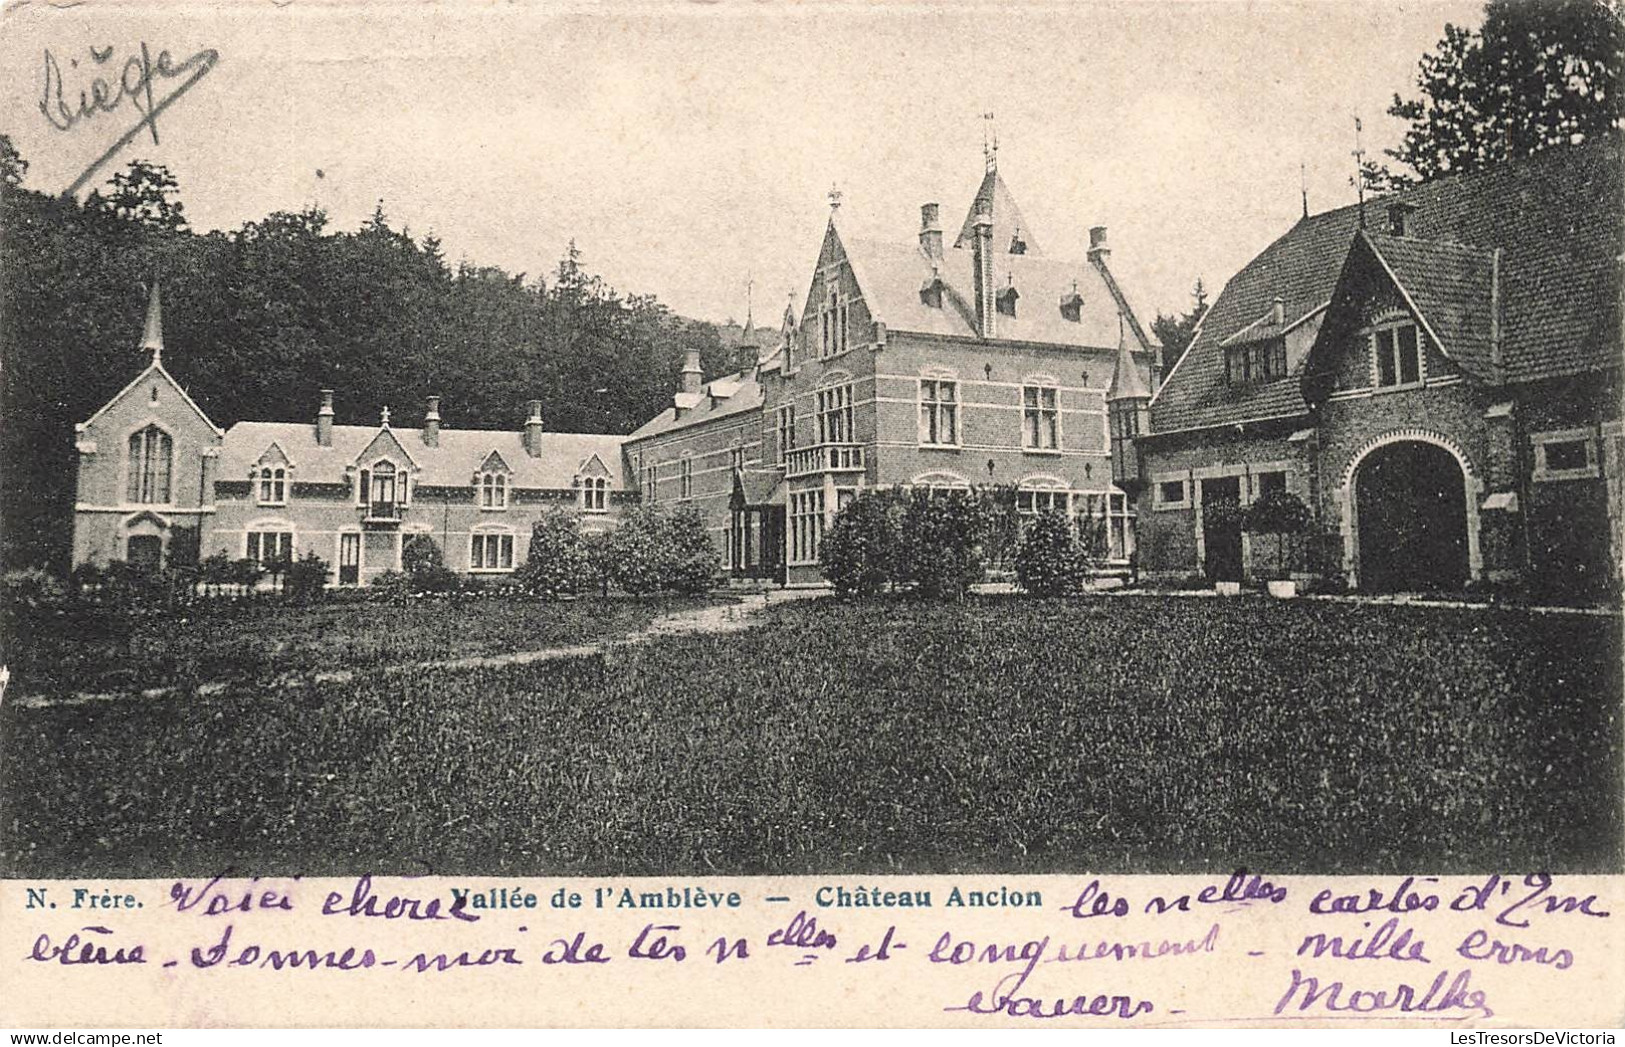 Liège
N. Frère. Vallée de l'Amblève — Château Ancion
Voici chère les nelles cartes d'
Donnes-moi de tes nelles et longuement - mille
Marthe
N. Frère
LesTresorsDeVictoria